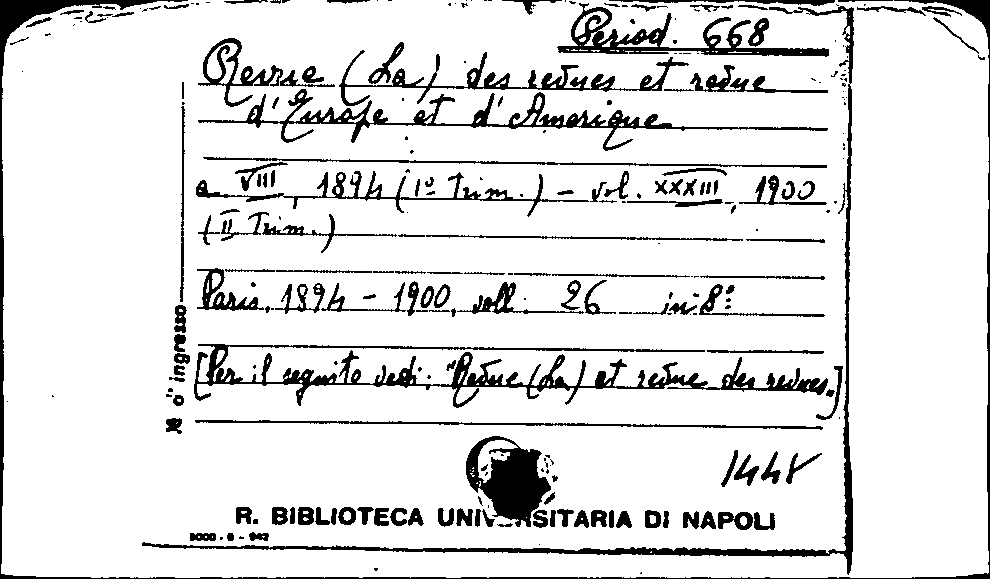 Period. 668
Revue (La) des revues et revue
d'Europe et d'Amerique
a. VIII, 1894 (1º Trim.) - vol. XXXIII, 1900
(II Trim.)
Paris, 1894 - 1900, voll. 26 in 8º
[Per il seguito vedi: "Revue (La) et revue des revues.]
Nº d'ingresso
1448
R. BIBLIOTECA UNIVERSITARIA DI NAPOLI